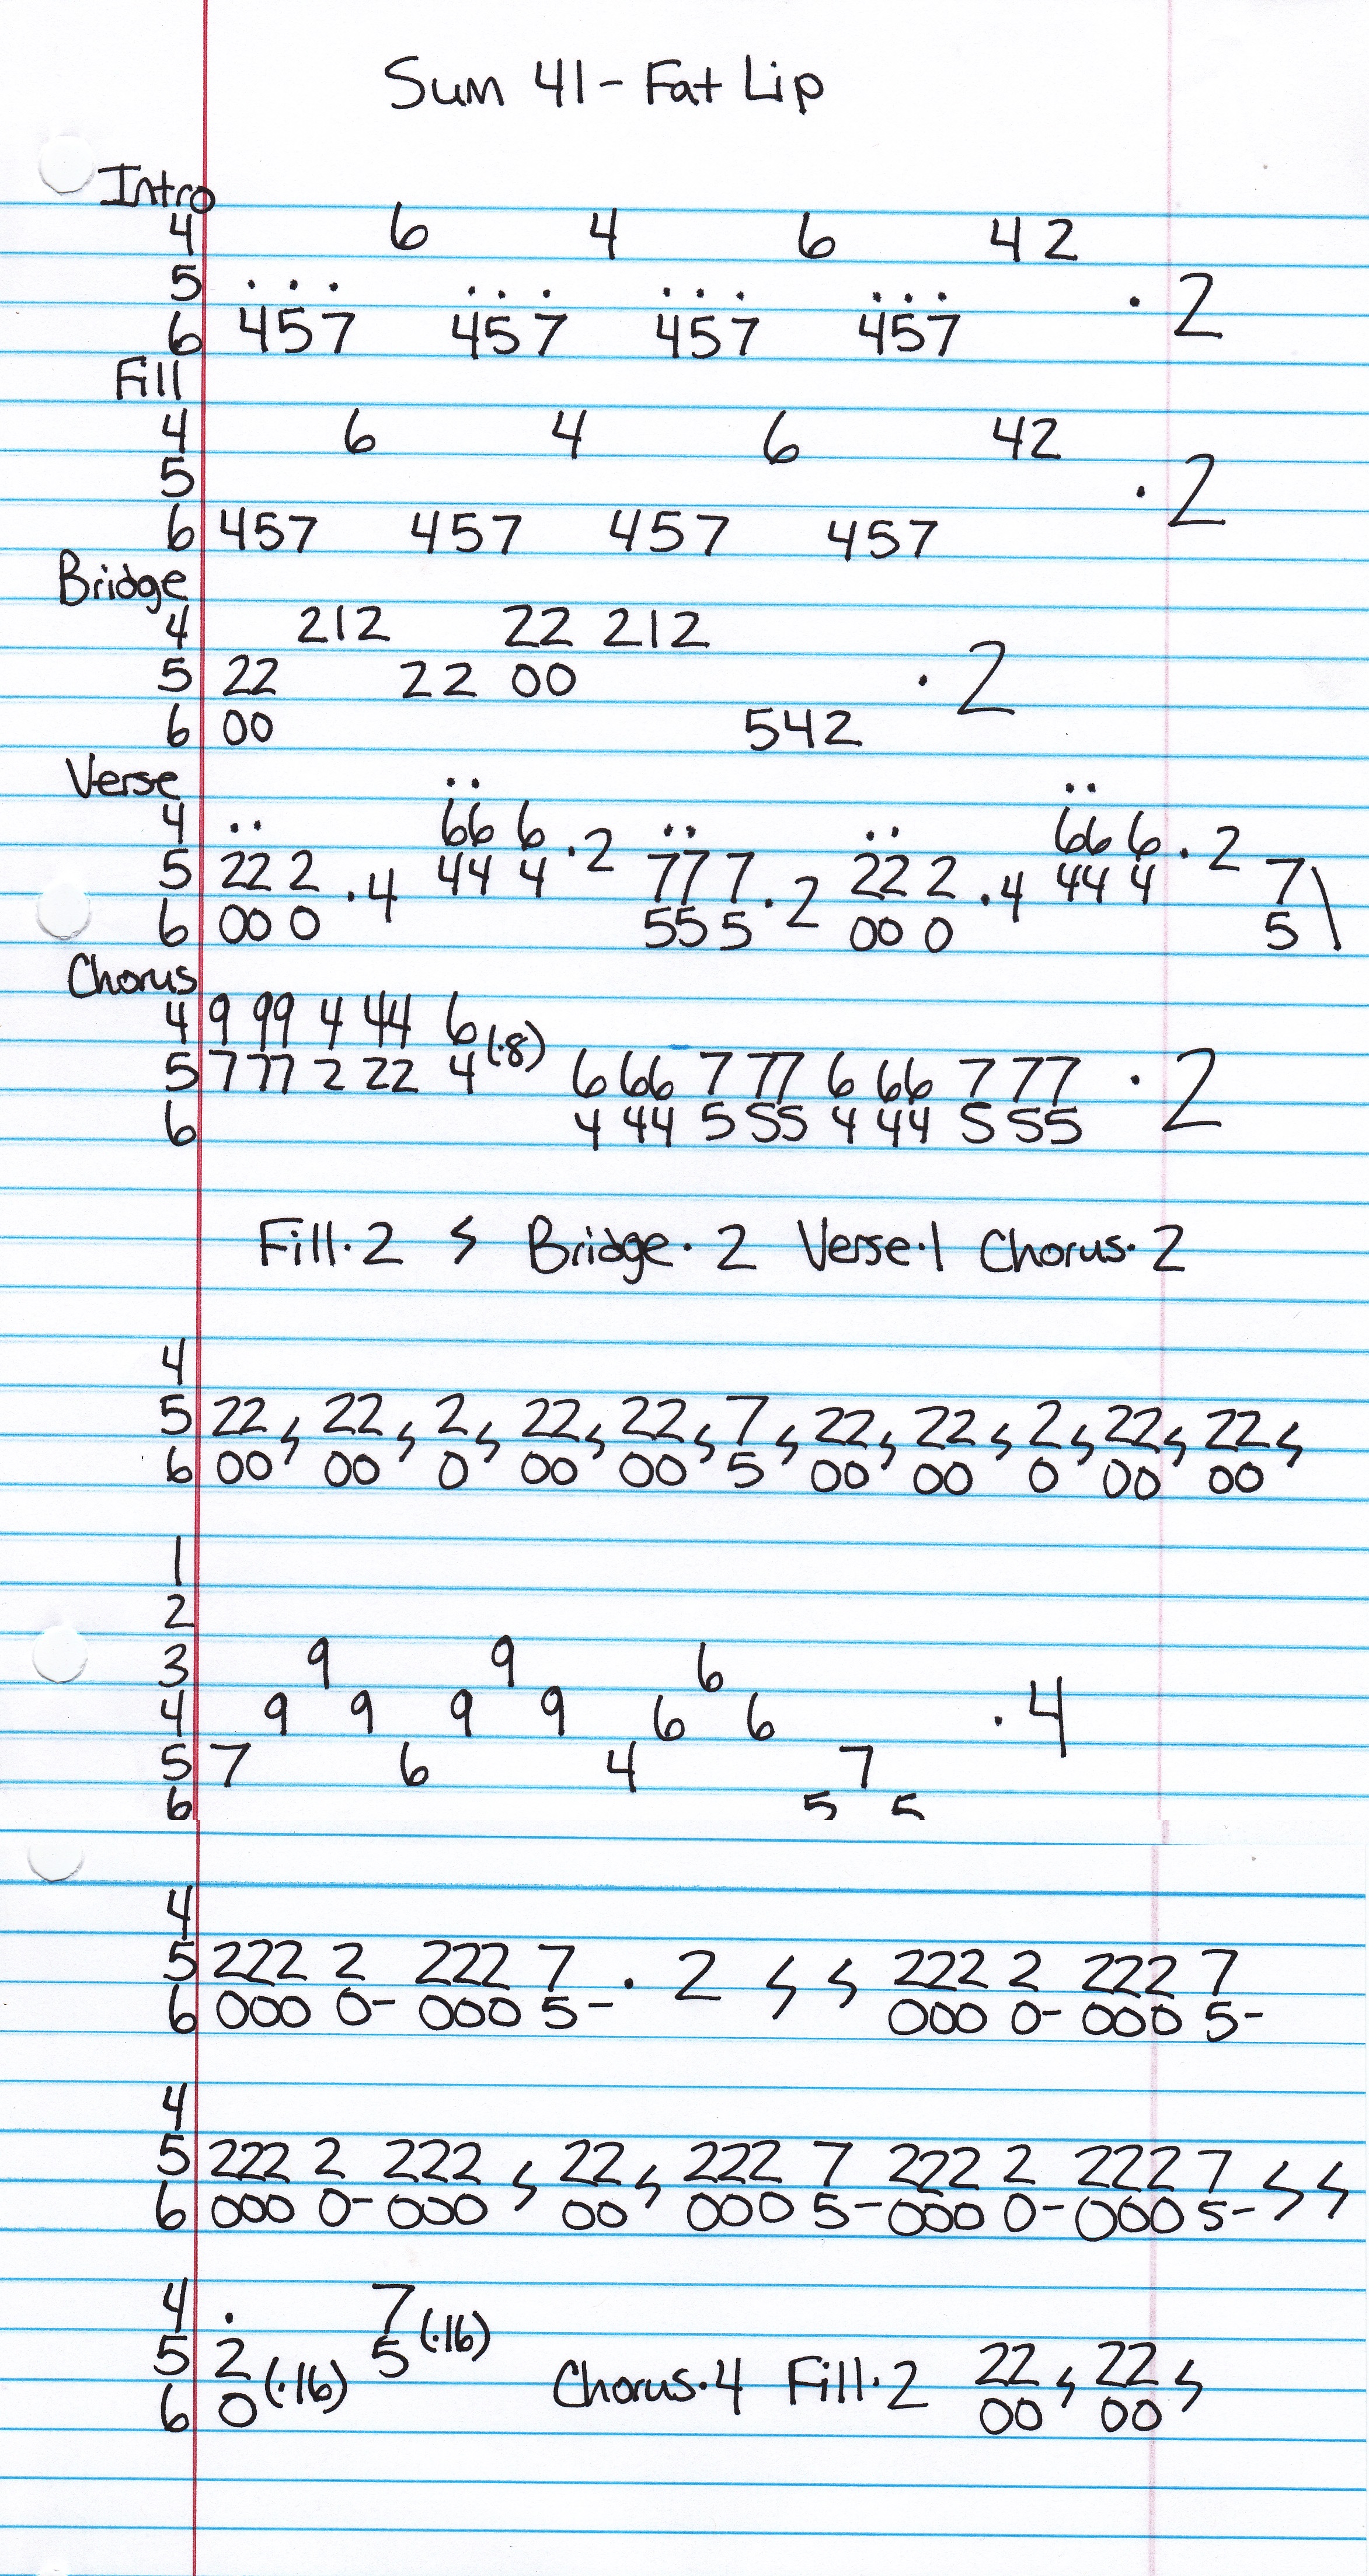 Sum 41 - Fat Lip
Intro
4 6 4 6 4 2
5 . . . . . . . . . . . . · 2
6 457 457 457 457
Fill
4 6 4 6 42
5 · 2
6 457 457 457 457
Bridge
4 212 22 212
5 22 22 00 · 2
6 00 542
Verse
4 .. .. 66 6 ·2 .. .. .. 66 6 ·2
5 22 2 ·4 44 4 77 7 ·2 22 2 ·4 44 4 7 \
6 00 0 55 5 00 0 5
Chorus
4 9 99 4 44 6 (·8)
5 7 77 2 22 4 6 66 7 77 6 66 7 77 · 2
6 4 44 5 55 4 44 5 55
Fill·2 𝄽 Bridge·2 Verse·1 Chorus·2
4
5 22 𝄽 22 𝄽 2 𝄽 22 𝄽 22 𝄽 7 𝄽 22 𝄽 22 𝄽 2 𝄽 22 𝄽 22 𝄽
6 00 00 0 00 00 5 00 00 0 00 00
1
2
3 9 9 6
4 9 9 9 9 6 6 ·4
5 7 6 4 7
6 5 5
4
5 222 2 222 7 · 2 𝄽 𝄽 222 2 222 7
6 000 0- 000 5- 000 0- 000 5-
4
5 222 2 222 𝄽 22 𝄽 222 7 222 2 222 7 𝄽 𝄽
6 000 0- 000 00 000 5- 000 0- 000 5-
4 . 7 (·16)
5 2 (·16) 5 Chorus·4 Fill·2 22 𝄽 22 𝄽
6 0 00 00